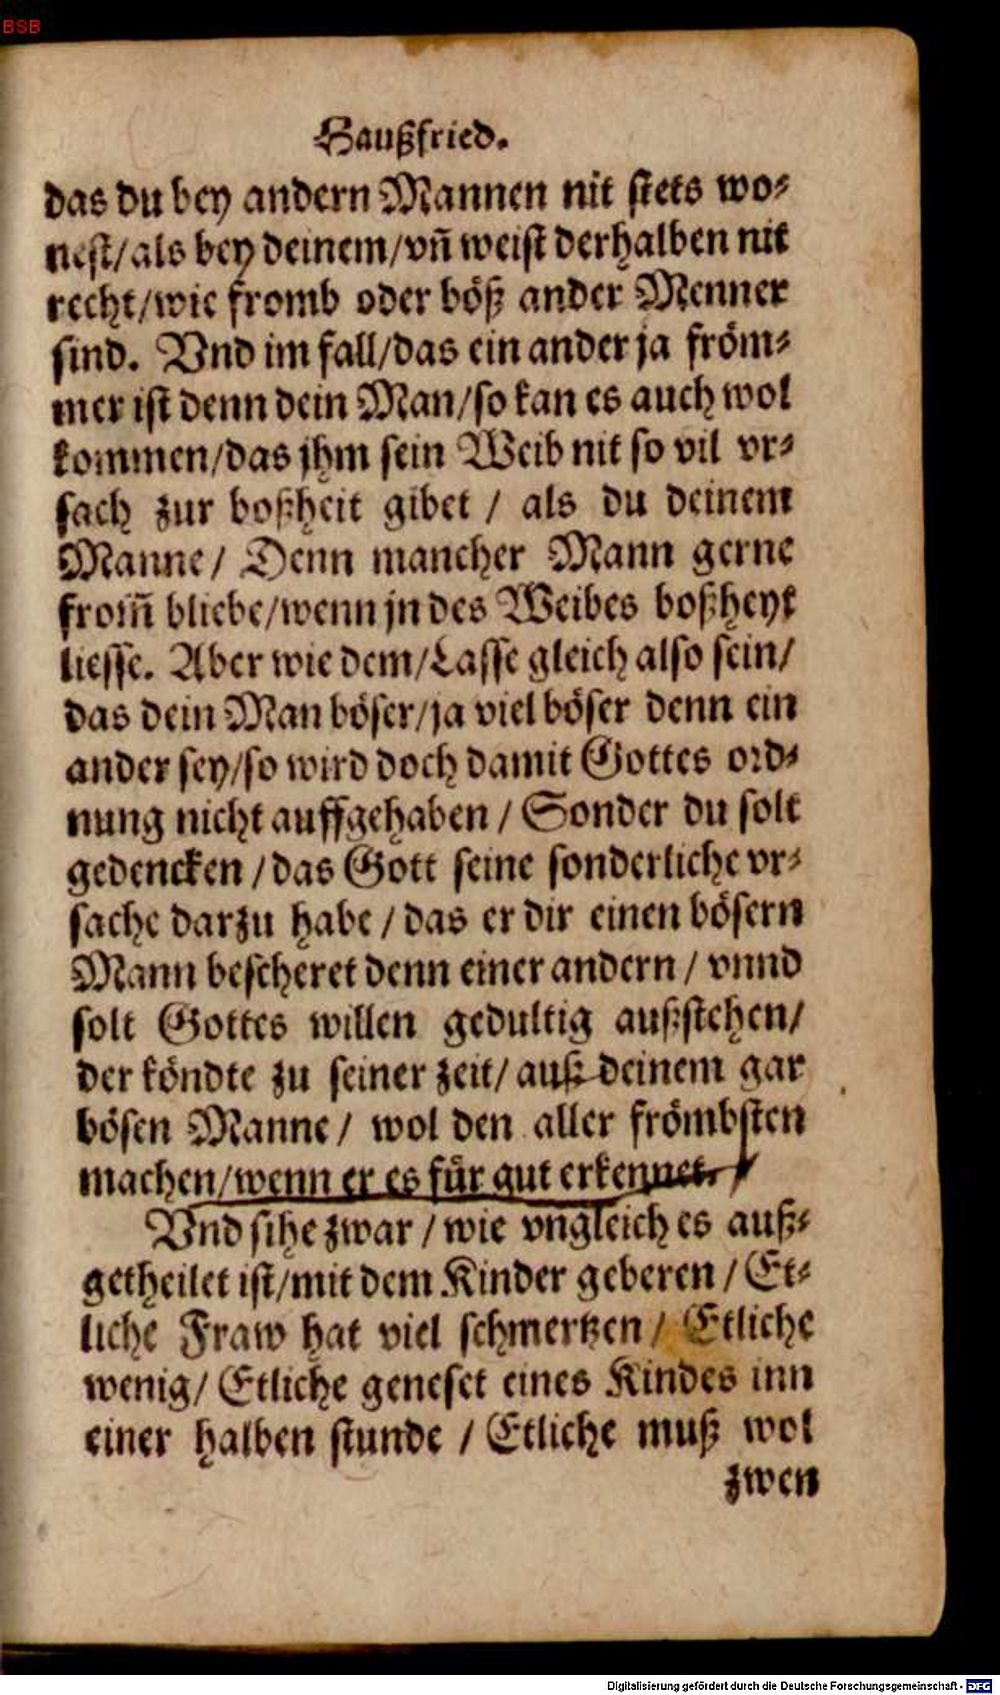 BSB
Haußfried.
das du bey andern Mannen nit stets wo⸗
nest/als bey deinem/vñ weist derhalben nit
recht/wie fromb oder böß ander Menner
sind. Vnd im fall/das ein ander ja fröm⸗
mer ist denn dein Man/so kan es auch wol
kommen/das jhm sein Weib nit so vil vr⸗
sach zur boßheit gibet / als du deinem
Manne/ Denn mancher Mann gerne
from̃ bliebe/wenn jn des Weibes boßheyt
liesse. Aber wie dem/Lasse gleich also sein/
das dein Man böser/ja viel böser denn ein
ander sey/so wird doch damit Gottes ord⸗
nung nicht auffgehaben / Sonder du solt
gedencken /das Gott seine sonderliche vr⸗
sache darzu habe / das er dir einen bösern
Mann bescheret denn einer andern / vnnd
solt Gottes willen gedultig außstehen/
der köndte zu seiner zeit/ auß deinem gar
bösen Manne/ wol den aller frömbsten
machen/wenn er es für gut erkennet.
Vnd sihe zwar / wie vngleich es auß⸗
getheilet ist/mit dem Kinder geberen / Et⸗
liche Fraw hat viel schmertzen / Etliche
wenig/ Etliche geneset eines Kindes inn
einer halben stunde / Etliche muß wol
zwen
Digitalisierung gefördert durch die Deutsche Forschungsgemeinschaft - DFG